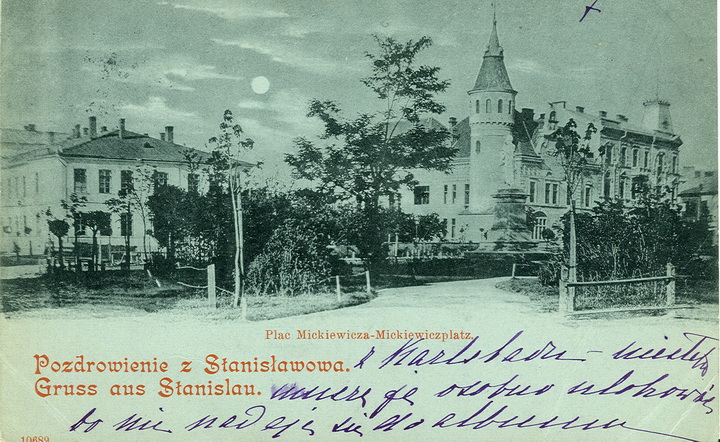 Plac Mickiewicza-Mickiewiczplatz.
Pozdrowienie z Stanisławowa.
Gruss aus Stanislau.
z Karlsbadu – niestety
muszę ją osobno ulokować
bo nie nadaje się do albumu
10689